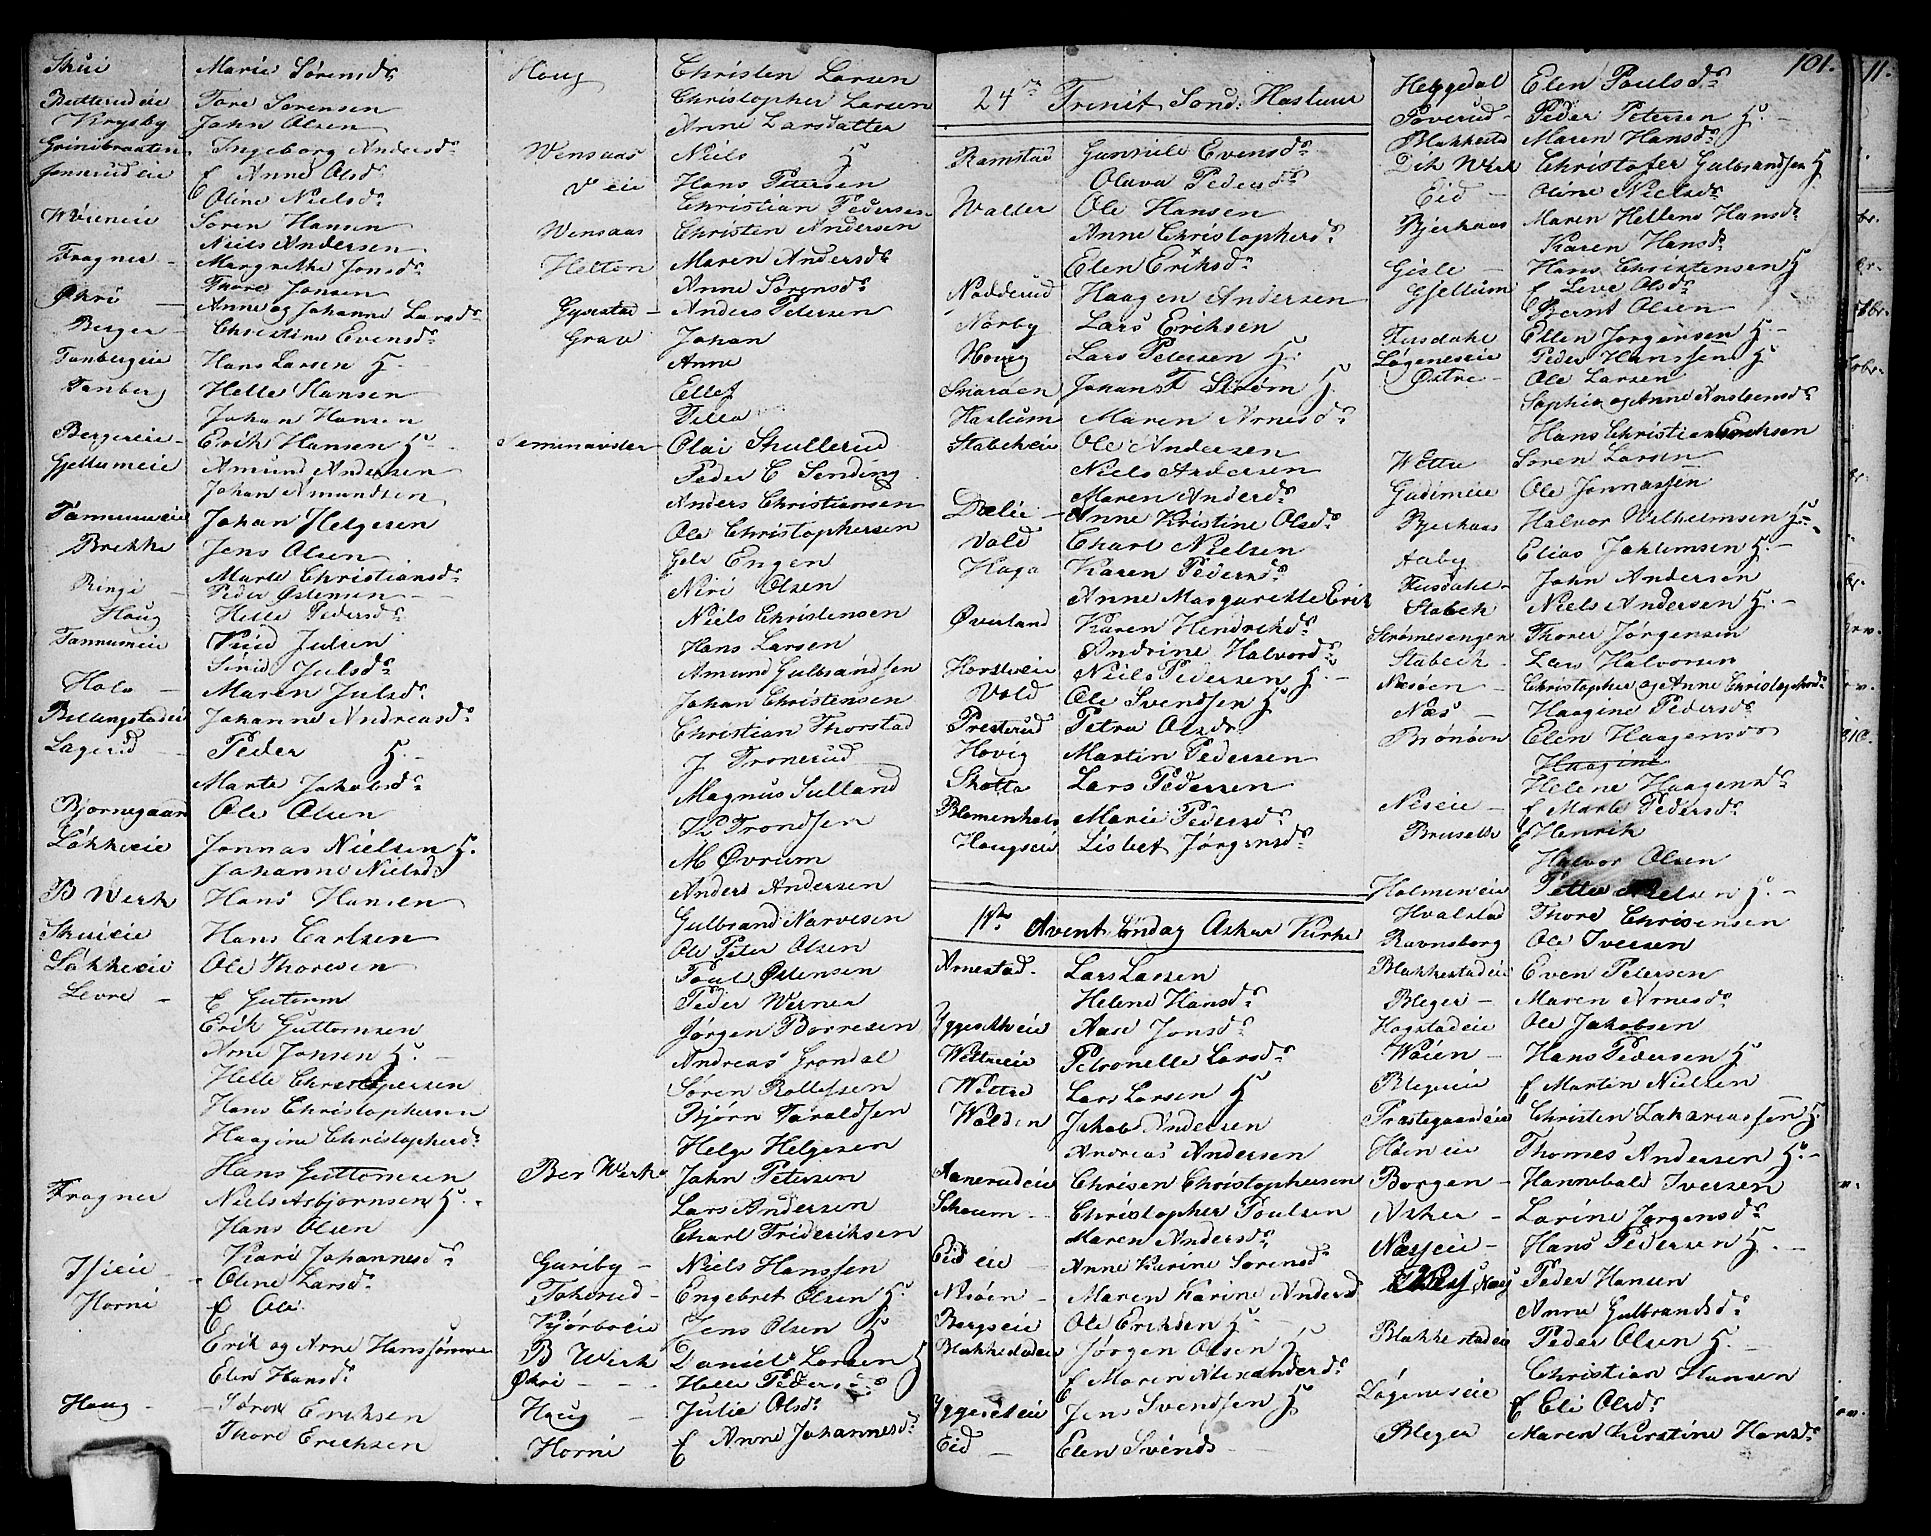 Skui Marie Sørensdr
Butterudeie Tore Sørensen
Krysby John Olsen
Grinibraaten Ingeborg Andersdr
Jonsrudeie f Anne Olsdr
Oline Nielsdr
Wøieneie Søren Hansen
Niels Andersen
Frogner Margrethe Jonsdr
Thore Jonsen
Økri Anne og Johanne Larsdr
Berger Christine Evensdr
Tanbergeie Hans Larsen H.
Tanberg Helle Hansen
Johan Hansen
Bergereie Erik Hansen H
Gjellumeie Amund Andersen
Johan Amundsen
Tannumeie Johan Helgesen
Brekke Jens Olsen
Marte Christiansdr
Ringi Peder Østensen
Haug Helle Pedersdr
Tannumeie Knud Julsen
Siri Julsdr
Hole Maren Julsdr
Billingstadeie Johanne Andreasdr
Lagerud Peder H.
Marte Jakobsdr
Bjørnegaard Ole Olsen
Løkkeeie Jonnas Nielsen H.
Johanne Nielsdr
B Werk Hans Hansen
Skuieie Hans Carlsen
Løkkeeie Ole Thoresen
Levre f Guttorm
Erik Guttormsen
Arne Jonsen H.
Helle Christophersen
Hans Christophersen
Haagine Christophersdr
Hans Guttormsen
Frogner Niels Asbjørnsen H.
Hans Olsen
Kari Johannesdr
Isieie Oline Larsdr
Horni f Ole
Erik og Arne Hanssønner
Elen Hansdr
Haug Søren Eriksen
Thore Erichsen
Haug Christen Larsen
Christopher Larsen
Anne Larsdatter
Wensaas Niels H
V eie Hans Petersen
Christian Pedersen
Wensaas Christin Andersen
Helton Maren Andersdr
Anne Sørensdr
Gyssestad Anders Petersen
Grav Johan
Anne
Ellef
Seminarister Olai Skullerud
Peder C Sending
Anders Christiansen
Ole Christophersen
Gole Engen
Niri Olsen
Niels Christensen
Hans Larsen
Amund Gulbrandsen
Johan Christensen
Christian Thorstad
J Tronerud
Magnus Sulland
Kr Trondsen
M Øvrum
Anders Andersen
Gulbrand Narvesen
Ole Peter Olsen
Poul Østensen
Peder Werner
Jørgen Borresen
Andreas Grøndal
Søren Rollefsen
Bjørn Taraldsen
Helge Helgesen
Ber Werk John Petersen
Lars Andersen
Charl Frideriksen
Gursby Niels Hanssen
Tokerud Engebret Olsen H.
Kjørboeie Jens Olsen H
B Werk Daniel Larsen H
Økri Helle Pedersdr
Haug Julie Olsdr
Horni f Anne Johannesdr
24de Trinit. Sønd: Haslum
Ramstad Gunhild Evensdr
Olava Pedersdr
Waller Ole Hansen
Anne Christophersdr
Elen Eriksdr
Nadderud Haagen Andersen
Nørby Lars Eriksen
Høvig Lars Petersen H.
Snarøen Johans F Strøm H
Haslum Maren Arnesdr
Stabekeie Ole Andersen
Niels Andersen
Maren Andersdr
Dælie Anne Kristine Olsdr
Vold Charl Nielsen
Haga Karen Pedersdr
Anne Margarethe Erik
Øverland Karen Hendriksdr
Andrine Halvordr
Horslieeie Niels Pedersen H.
Vold Ole Svendsen H
Presterud Petra Olsdr
Høvig Martin Pedersen
Skotta Lars Pedersen
Blomenholm Marie Pedersdr
Haugseie Lisbet Jørgensdr
1ste Advent Søndag Asker Kirke
Arnestad Lars Larsen
Helene Hansdr
Yggesetheie Aase Jonsdr
Wettreeie Petronelle Larsdr
Wettre Lars Larsen H
Wolden Jakob Andersen
Andreas Andersen
Aanerudeie Chrisen Christophersen
Skoum Christopher Poulsen
Maren Andersdr
Eid eie Anne Karine Sørensd
Nesøen Maren Karine Andersd
Bergseie Ole Eriksen H.
Blakkestadeie Jørgen Olsen H
f Maren Alexandersdr
Yggeseteie Jens Svendsen H.
Eid Elen Svends
101.
Heggedal Elen Poulsdr
Poverud Peder Petersen H.
Blakkestad Maren Hansdr
Dik Werk Christofer Gulbrandsen H
Eid Oline Nielsdr
Bjerkaas Maren Hellene Hansdr
Karen Hansdr
Gisle Hans Christensen H
Gjellum f Leve Olsdr
Bernt Olsen
Fusdahl Ellen Jørgensen H.
Løgeneseie Peder Hanssen H.
Østre Ole Larsen
Sophie og Anne Anstensdr
Hans Christian Erichsen
Wettre Søren Larsen
Gudimeie Ole Jonnassen
Bjerkaas Halvor Wilhelmsen H.
Aaby Elias Joklumsen H.
Fusdahl John Andersen
Stabek Niels Andersen H.
Strømesengen Thorer Jørgensen
Stabeck Lars Halvorsen
Næsøen Christopher og Anne Christophersdr
Næs Haagine Pedersdr
Brønøen Elen Haagensdr
Haagine
Helene Haagensdr
Neseie f Marte Pedersdr
Bruselle f Henrik
Halvor Olsen
Holmeneie Petter Nielsen H.
Hvalstad Thore Chrisensen
Ravnsborg Ole Iversen
Blakkestadeie Even Petersen
Bleger Maren Arnesdr
Hogstadeie Ole Jakobsen
Wøien Hans Pedersen H
Blegeeie f Martin Nielsen
Præstegaardeie Christen Zakariassen H.
Høin eie Thomes Andersen H.
Borgen Hannebald Iversen
Asker Larine Jørgensdr
Næsjeie Hans Pedersen H.
Næs Peder Hansen
Anne Gulbrandsdr
Blakkestadeie Peder Olsen H.
Christian Hansen
Løgeneseie f Eli Olsdr
Bleger Maren Kirstine Hansdr
11.